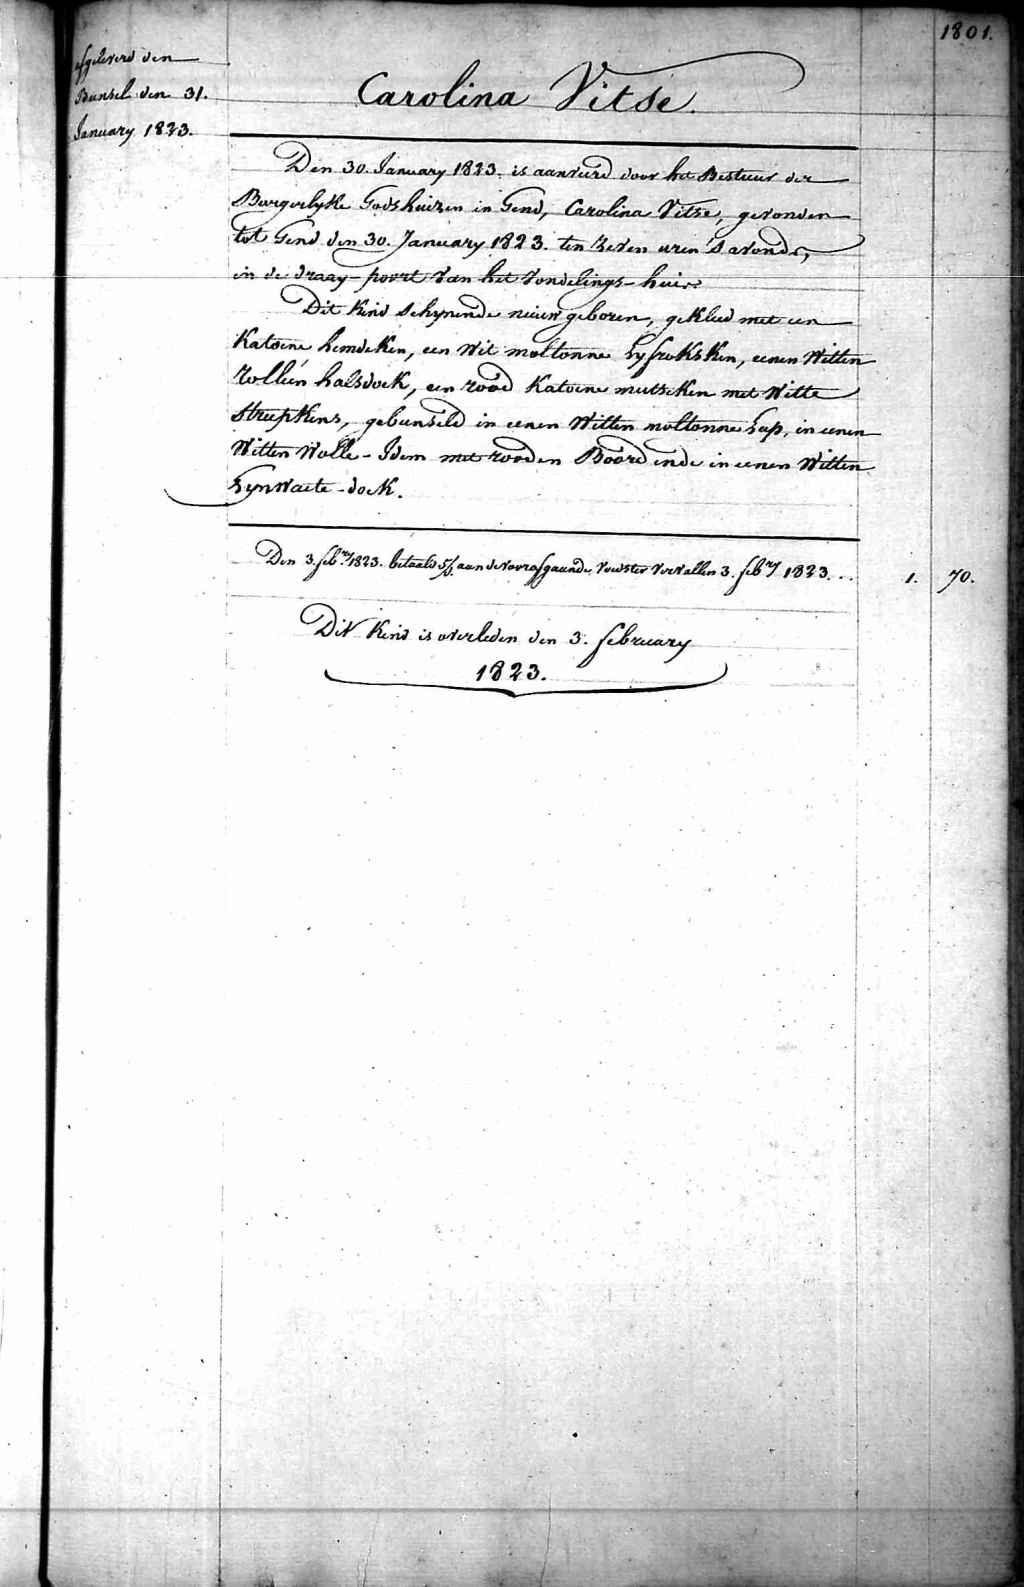 1801.
afgeleverd den
Bunsel den 31.
January 1823.
Carolina Vitse.
Den 30. January 1823. is aanveird door het Bestuur der
Burgerlyke Godshuizen in Gend, Carolina Vitse, gevonden
tot Gend den 30. January 1823. ten zeven uren 's avonds,
in de draay-poort van het vondelings-huis.
Dit kind schynende nieuw geboren, gekleed met een
katoene hemdeken, een wit moltonne Lyfroksken, eenen witten
rolleün halsdoek, een rood katoene mutseken met witte
streepkens, gebunseld in eenen witten moltonne Lap, in eenen
witten wolle-Idem met rooden Boord ende in eenen witten
Lynwaete-doek.
Den 3. feb.ry 1823. betaeld aan de voorafgaande Voedster vervallen 3. feb.ry 1823... 1. 70.
Dit kind is overleden den 3. february
1823.